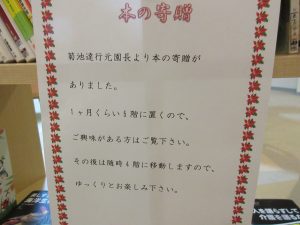 本の寄贈
菊池達行元園長より本の寄贈が
ありました。
1ヶ月くらい5階に置くので、
ご興味がある方はご覧下さい。
その後は随時4階に移動しますので、
ゆっくりとお楽しみ下さい。